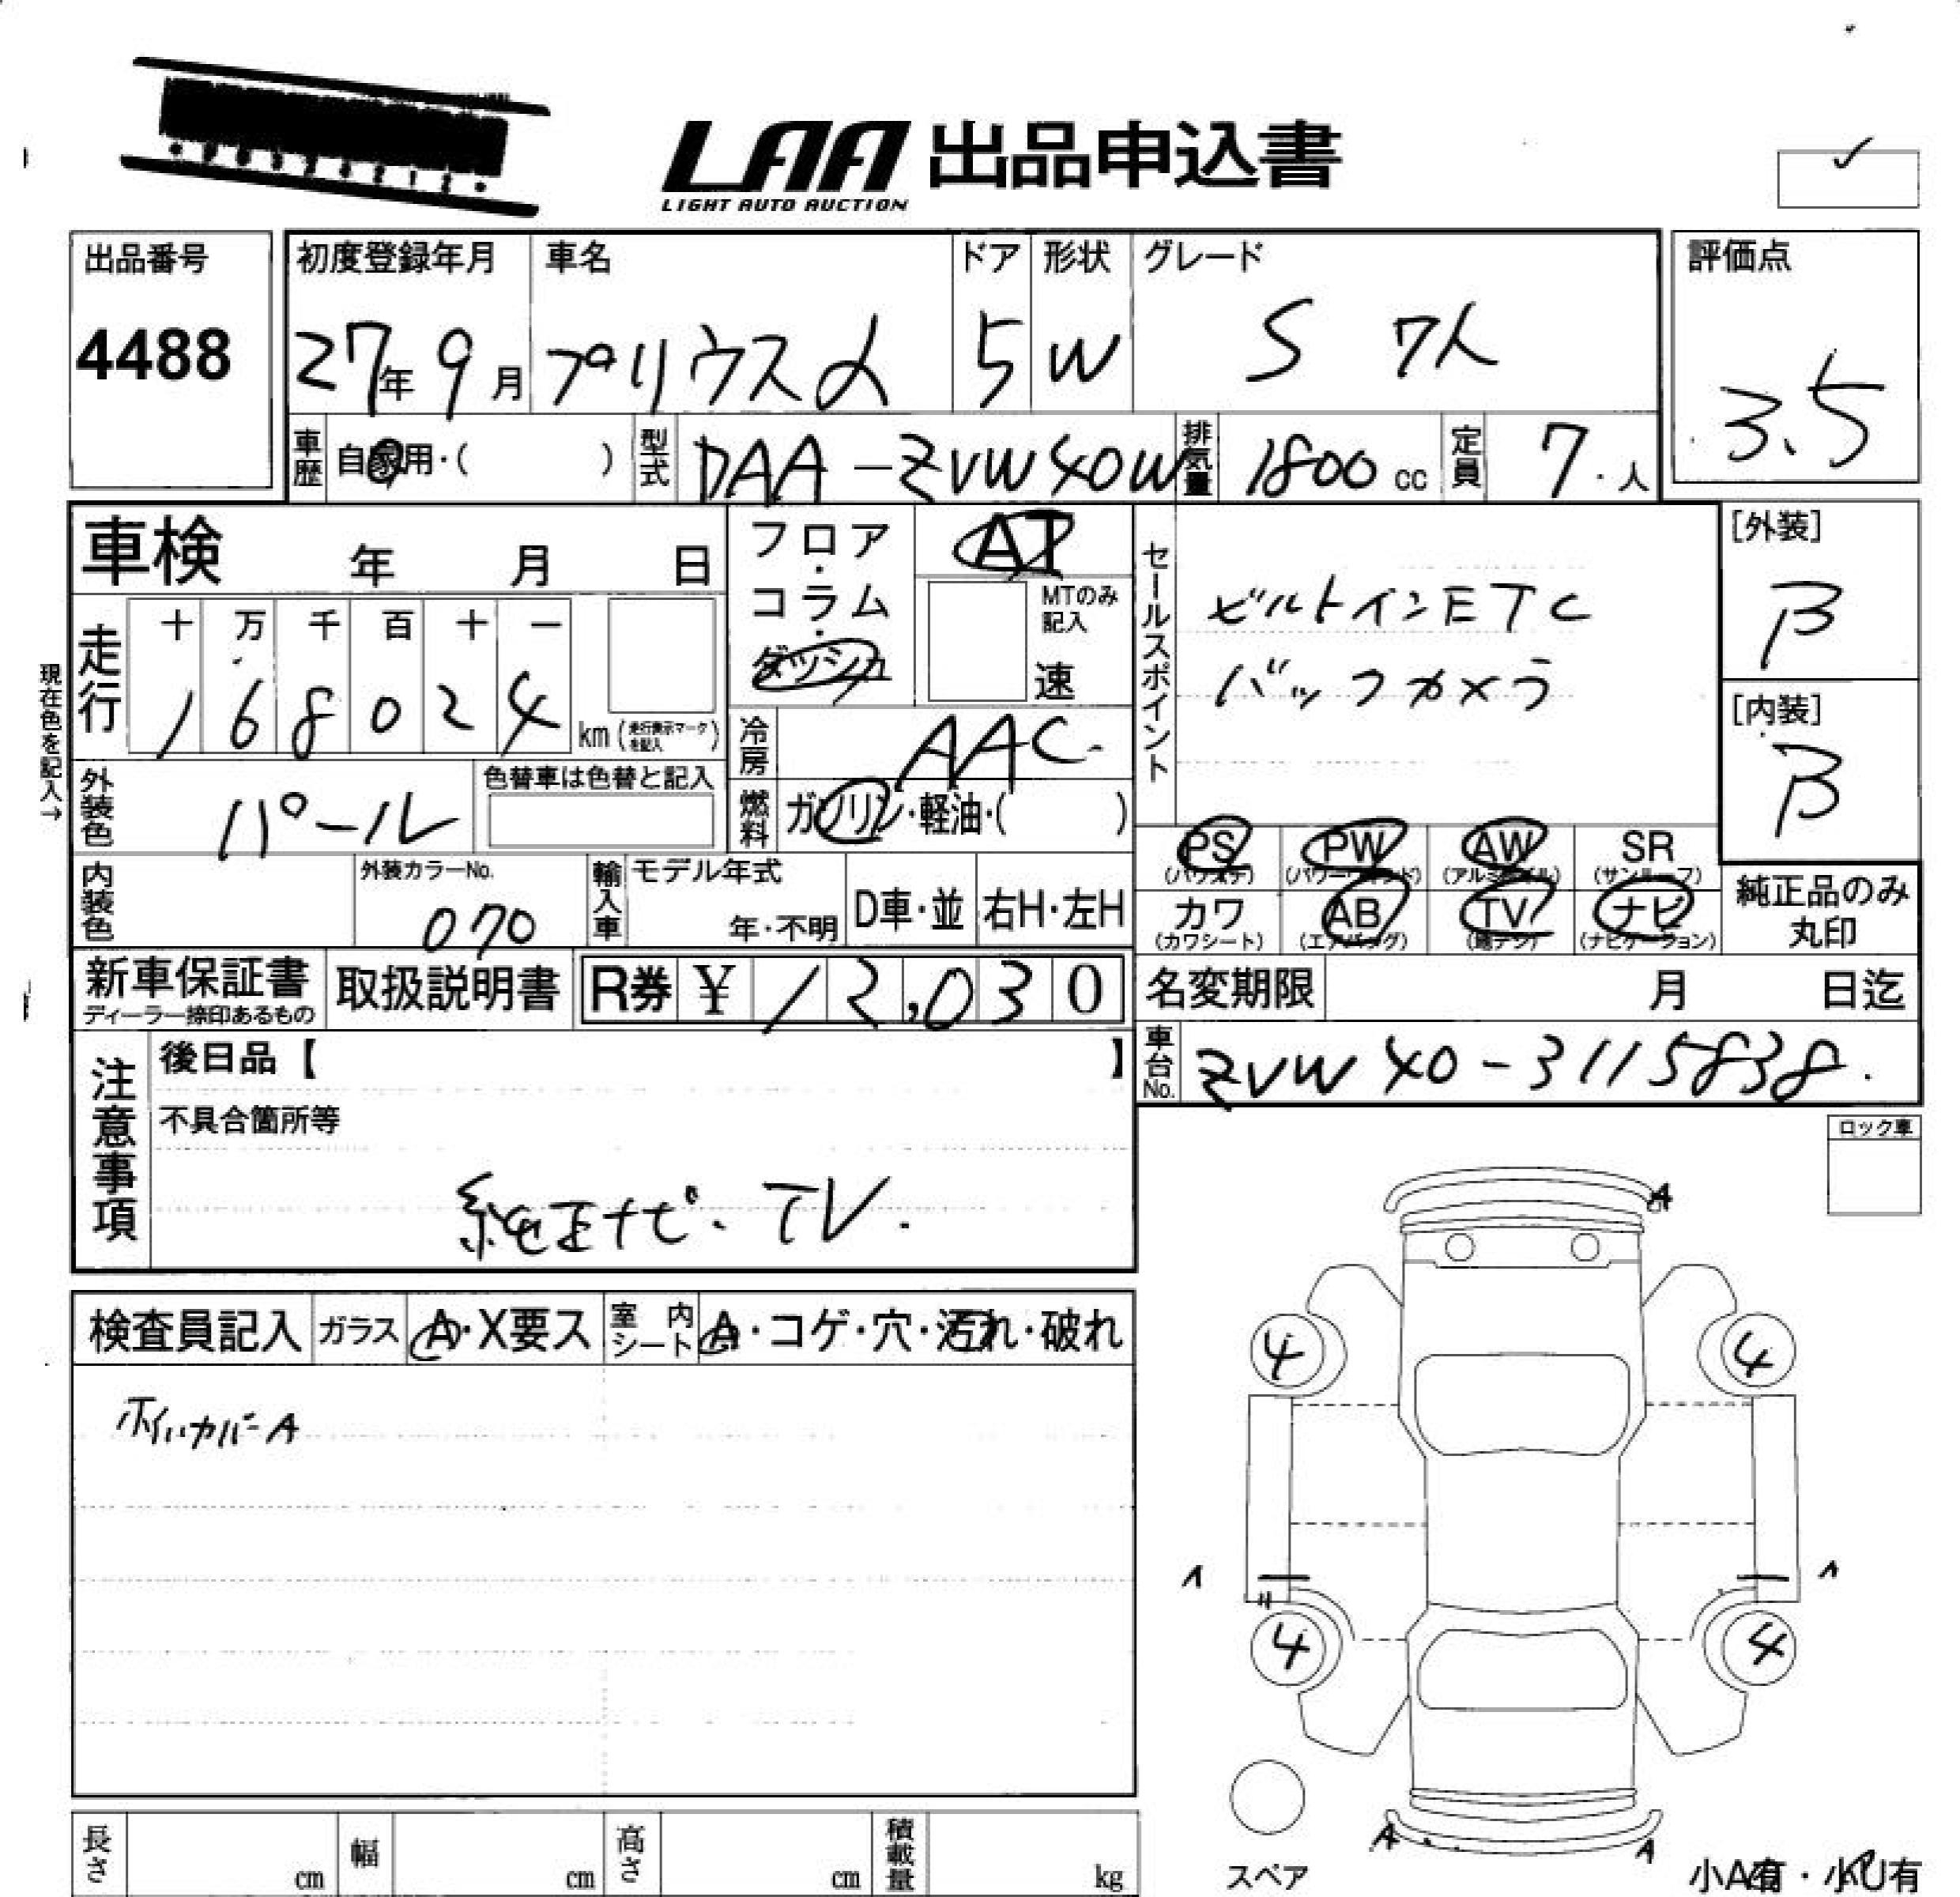 LAA 出品申込書
LIGHT AUTO AUCTION
✓
出品番号
4488
初度登録年月
27年 9月
車名
プリウスα
ドア
5
形状
W
グレード
S 7人
評価点
3.5
車歴 自家用・( )
型式 DAA-ZVW40W
排気量 1800 cc
定員 7・人
車検 年 月 日
フロア・コラム・ダッシュ
AT
MTのみ記入
速
セールスポイント
ビルトインETC
バックカメラ
[外装]
B
[内装]
B
現在色を記入→
走行
十 万 千 百 十 一
1 6 8 0 2 4 km (走行表示マークを記入)
冷房 AAC
外装色 パール
色替車は色替と記入
燃料 ガソリン・軽油・( )
PS (パワステ)
PW (パワーウインド)
AW (アルミホイル)
SR (サンルーフ)
カワ (カワシート)
AB (エアバッグ)
TV
ナビ (ナビゲーション)
純正品のみ丸印
内装色
外装カラーNo.
070
輸入車
モデル年式
年・不明
D車・並
右H・左H
新車保証書
ディーラー捺印あるもの
取扱説明書
R券 ¥ 12,030
名変期限 月 日迄
車台No. ZVW40-3115838
注意事項
後日品【 】
不具合箇所等
純正ナビ・TV.
ロック車
検査員記入
ガラス A・X要ス
室内シート A・コゲ・穴・汚れ・破れ
ホイルカバーA
A
4 4
A A
4 4
A A
スペア
長さ cm
幅 cm
高さ cm
積載量 kg
小A有・小U有